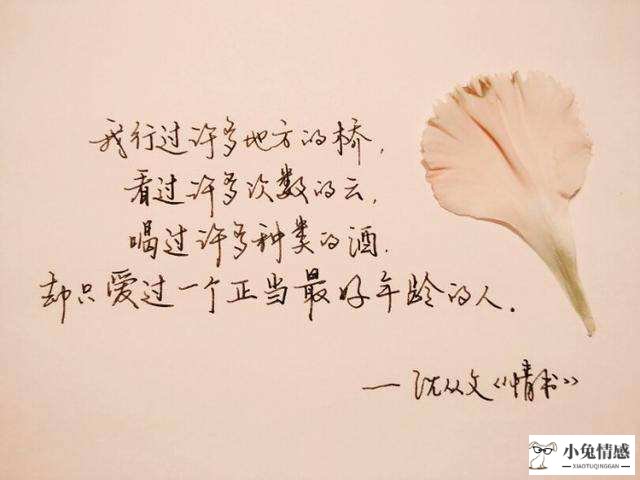 我行过许多地方的桥,
看过许多次数的云,
喝过许多种类的酒.
却只爱过一个正当最好年龄的人.
——沈从文《情书》
小兔情感
XIAOTUQINGGAN